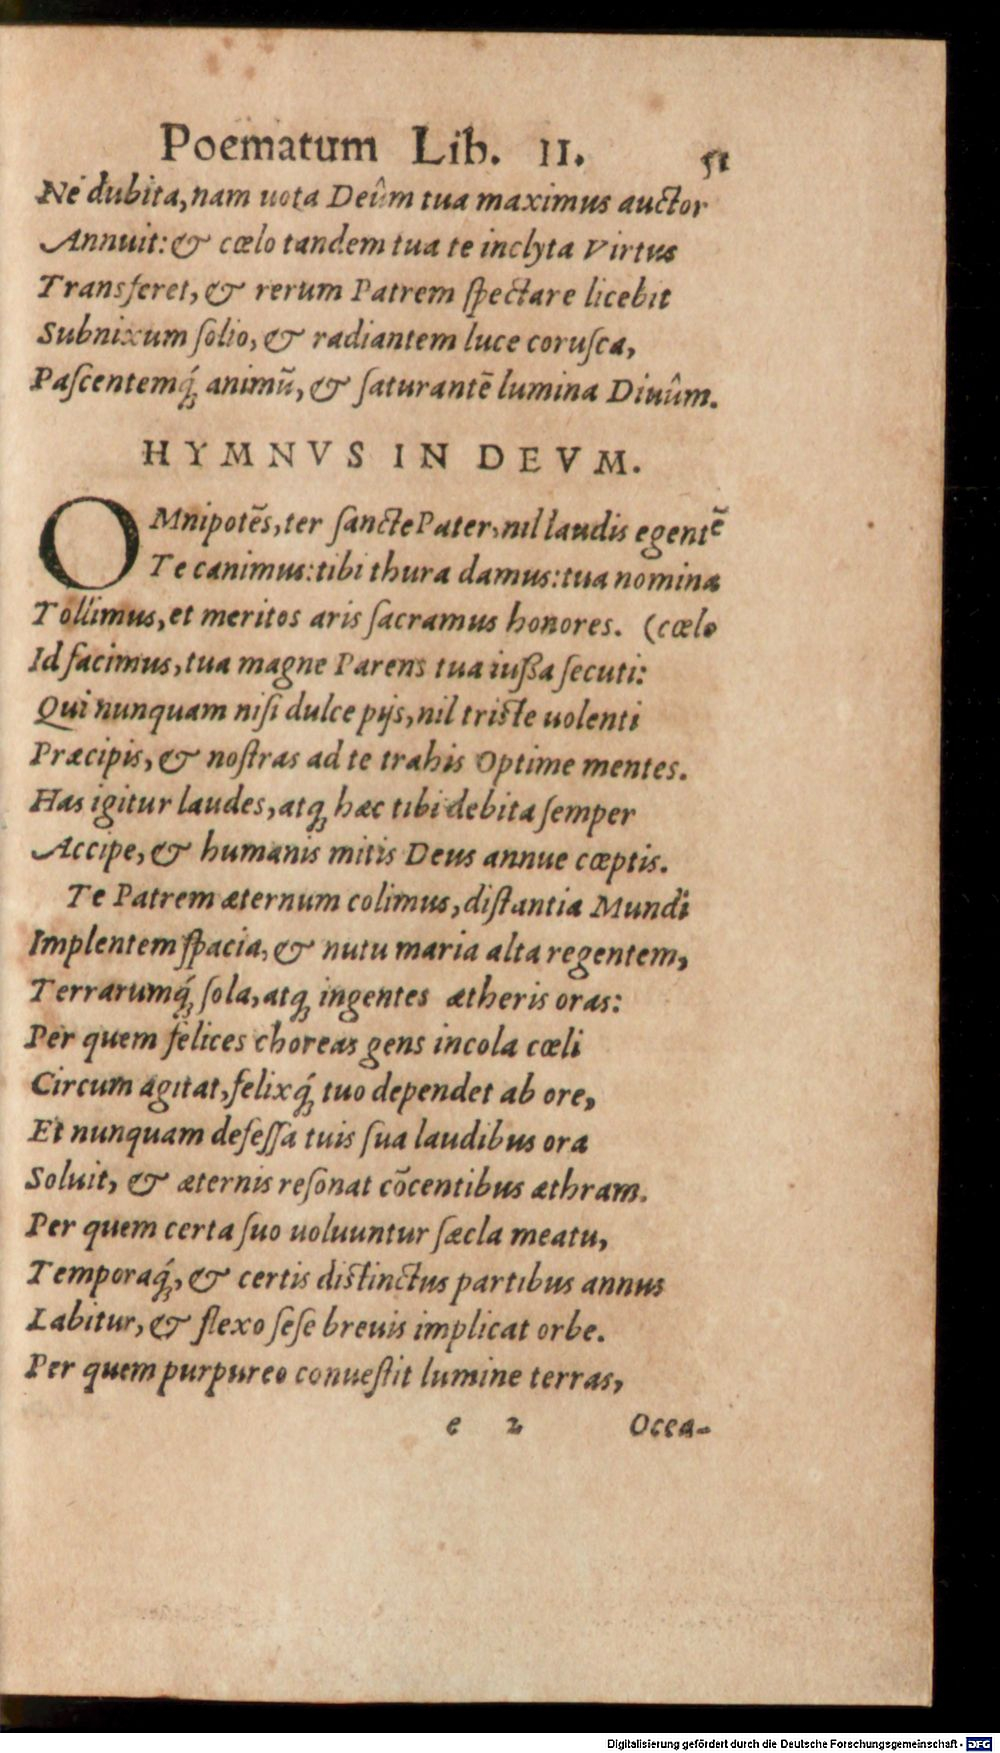 Poematum Lib. II. 51
Ne dubita, nam uota Deûm tua maximus auctor
Annuit: & cœlo tandem tua te inclyta Virtus
Transferet, & rerum Patrem ſpectare licebit
Subnixum ſolio, & radiantem luce coruſca,
Paſcentemq́; animū, & ſaturantē lumina Diuûm.
HYMNVS IN DEVM.
OMnipotēs, ter ſancte Pater, nil laudis egentē
Te canimus: tibi thura damus: tua nomina
Tollimus, et meritos aris ſacramus honores. (cœlo
Id facimus, tua magne Parens tua iußa ſecuti:
Qui nunquam niſi dulce pijs, nil triste uolenti
Præcipis, & noſtras ad te trahis Optime mentes.
Has igitur laudes, atq; hæc tibi debita ſemper
Accipe, & humanis mitis Deus annue cœptis.
Te Patrem æternum colimus, diſtantia Mundi
Implentem ſpacia, & nutu maria alta regentem,
Terrarumq́; ſola, atq; ingentes ætheris oras:
Per quem felices choreas gens incola cœli
Circum agitat, felixq́; tuo dependet ab ore,
Et nunquam defeſſa tuis ſua laudibus ora
Soluit, & æternis reſonat cōcentibus æthram.
Per quem certa ſuo uoluuntur ſæcla meatu,
Temporaq́;, & certis distinctus partibus annus
Labitur, & flexo ſeſe breuis implicat orbe.
Per quem purpureo conueſtit lumine terras,
e 2 Ocea-
Digitalisierung gefördert durch die Deutsche Forschungsgemeinschaft - DFG